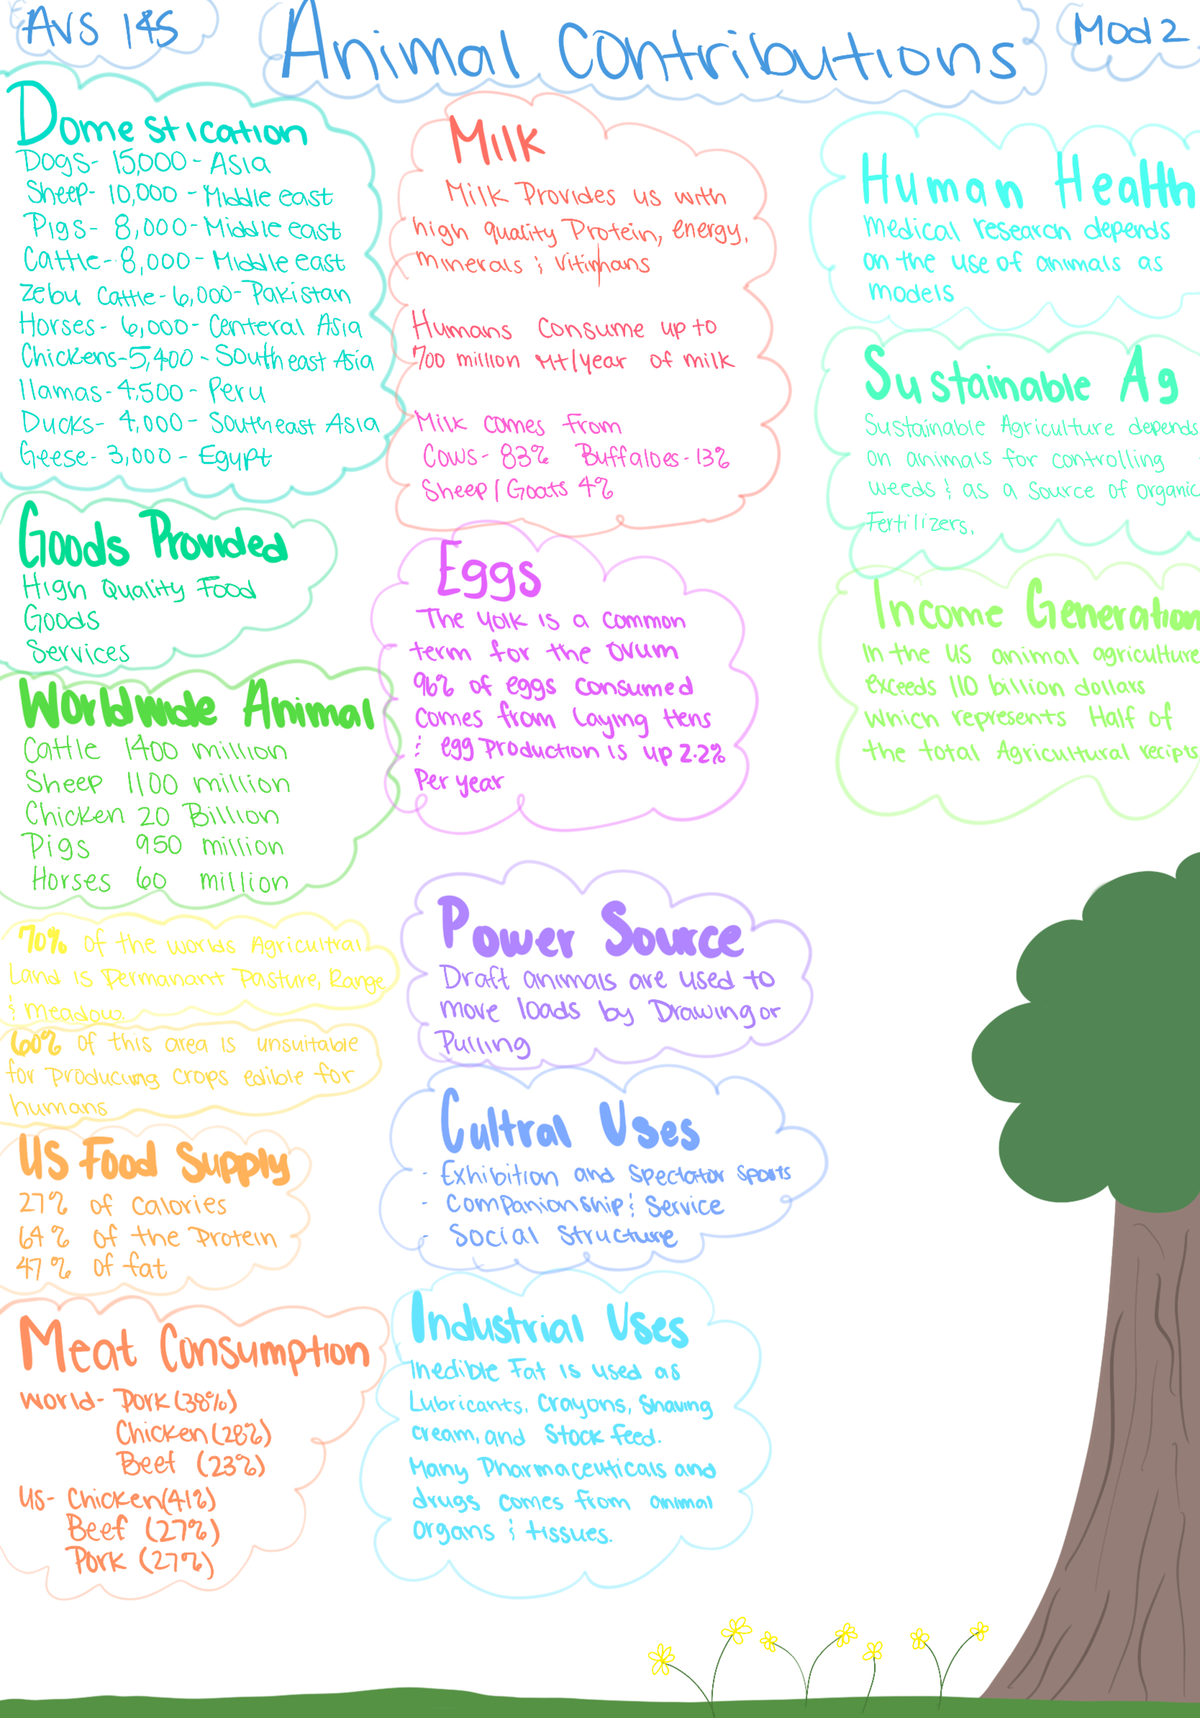 AVS 145
Animal Contributions
Mod 2
Domestication
Dogs- 15,000 - Asia
Sheep- 10,000 - Middle east
Pigs- 8,000- Middle east
Cattle- 8,000- Middle east
Zebu Cattle- 6,000- Pakistan
Horses- 6,000- Centeral Asia
Chickens-5,400 - Southeast Asia
llamas- 4,500- Peru
Ducks- 4,000 - Southeast Asia
Geese- 3,000 - Egypt
Goods Provided
High Quality Food
Goods
Services
Worldwide Animal
Cattle 1400 million
Sheep 1100 million
Chicken 20 Billion
Pigs 950 million
Horses 60 million
70% of the worlds Agricultral
Land is Permanant Pasture, Range
& meadow.
60% of this area is unsuitable
for producing crops edible for
humans
US Food Supply
27% of Calories
64% of the Protein
47% of fat
Meat Consumption
World- Pork (38%)
Chicken (28%)
Beef (23%)
US- Chicken (41%)
Beef (27%)
Pork (27%)
Milk
Milk Provides us with
high quality Protein, energy,
minerals & vitimans
Humans Consume up to
700 million Mt/year of milk
Milk comes from
Cows- 83% Buffaloes- 13%
Sheep/Goats 4%
Eggs
The yolk is a common
term for the ovum
96% of eggs consumed
comes from Laying Hens
& egg production is up 2.2%
Per year
Power Source
Draft animals are used to
move loads by Drawing or
Pulling
Cultral Uses
- Exhibition and Spectator Sports
- Companionship & Service
- Social Structure
Industrial Uses
Inedible Fat is used as
Lubricants, Crayons, Shaving
cream, and Stock feed.
Many Pharmaceuticals and
drugs comes from animal
organs & tissues.
Human Health
Medical research depends
on the use of animals as
models
Sustainable Ag
Sustainable Agriculture depends
on animals for controlling
weeds & as a source of organic
Fertilizers.
Income Generation
In the US animal agriculture
exceeds 110 billion dollars
which represents Half of
the total Agricultural recipts